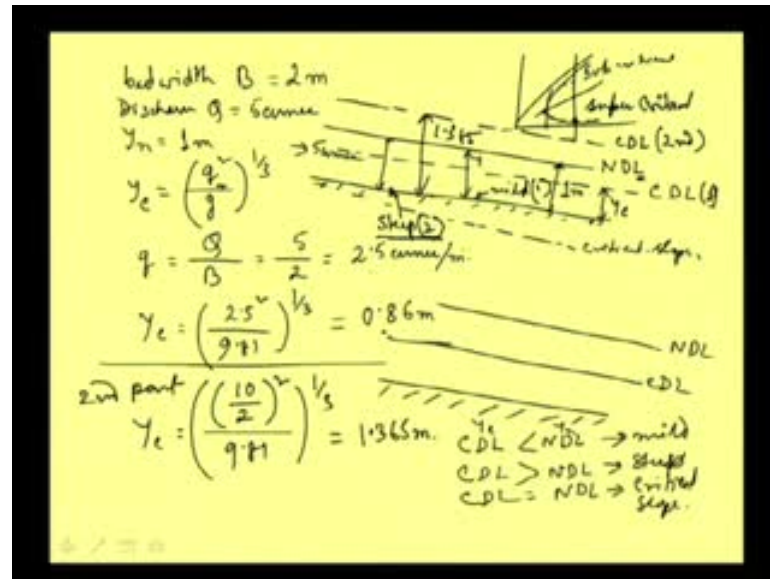 bedwidth B = 2m
Discharge Q = 5cumec
Yn = 1m
Yc = (q²/g)^1/3
q = Q/B = 5/2 = 2.5 cumec/m.
Yc = (2.5²/9.81)^1/3 = 0.86m
2nd part
Yc = ((10/2)²/9.81)^1/3 = 1.365m.
Sub critical
Super Critical
CDL (2nd)
NDL
CDL (1)
mild (1)
1m
Yc
Steep (2)
critical slope.
NDL
CDL
Yc Yn
CDL < NDL → mild
CDL > NDL → steep
CDL = NDL → critical
slope.